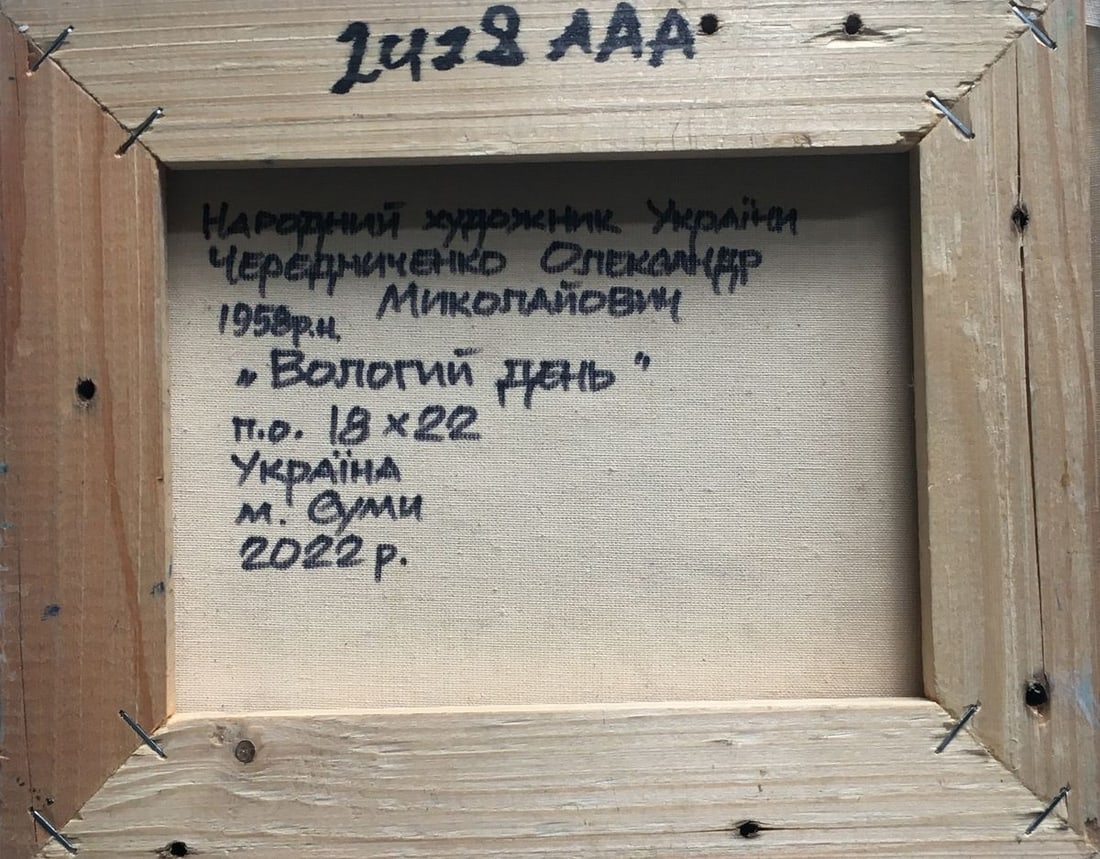 2428 ААА
Народний художник України
Чередниченко Олександр
Миколайович
1958р.н.
„Вологий день”
п.о. 18×22
Україна
м. Суми
2022р.